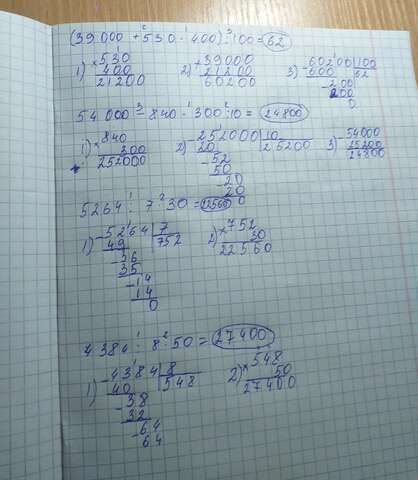 (39 000 + 530 · 400) : 100 = 62
1) × 530 2) + 39000 3) - 60200 | 100
400 21200 600 62
21200 60200 - 200
200
0
54 000 - 840 · 300 : 10 = 24800
1) × 840 2) - 252000 | 10 3) - 54000
300 20 25200 25200
252000 - 52 24800
50
- 20
20
0
5264 : 7 · 30 = 22560
1) - 5264 | 7 2) × 752
49 752 30
- 36 22560
35
- 14
14
0
4384 : 8 · 50 = 27400
1) - 4384 | 8 2) × 548
40 548 50
- 38 27400
32
- 64
64